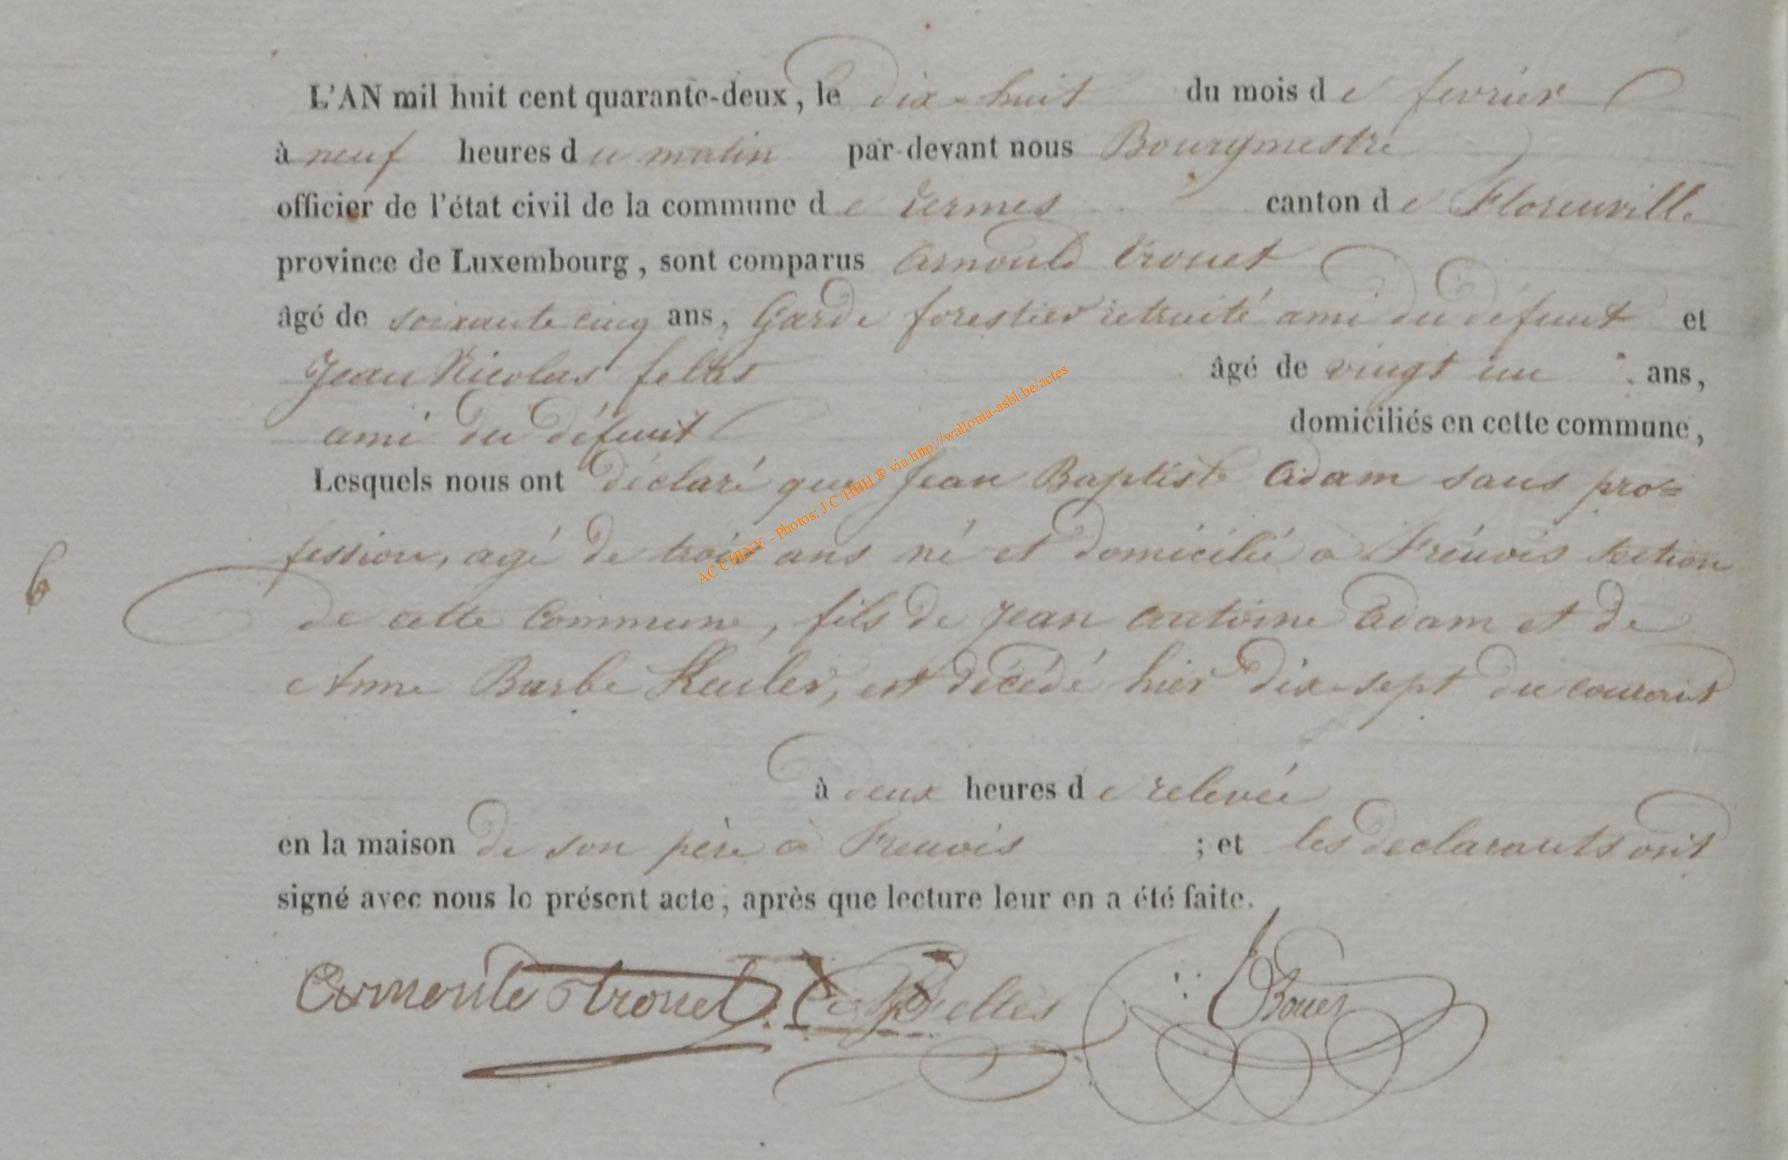 L'AN mil huit cent quarante-deux, le dix-huit du mois de fevrier
à neuf heures du matin par-devant nous Bourgmestre
officier de l'état civil de la commune de Termes canton de Florenville
province de Luxembourg, sont comparus Arnould Trouet
âgé de soixante cinq ans, Garde forestier retraité ami du défunt et
Jean Nicolas feltes âgé de vingt un ans,
ami du défunt domiciliés en cette commune,
Lesquels nous ont déclaré que Jean Baptiste Adam sans pro=
fession, agé de trois ans né et domicilié a Frénois section
6
de cette Commune, fils de Jean Antoine Adam et de
Anne Barbe Keuler, est décédé hier dix-sept du courant
à deux heures de relevée
en la maison de son père à Frenois ; et les declarants ont
signé avec nous le présent acte, après que lecture leur en a été faite.
Trouet Feltès
AC CHINY - Photos: J.C/HBH @ via http://wallonia-asbl.be/actes